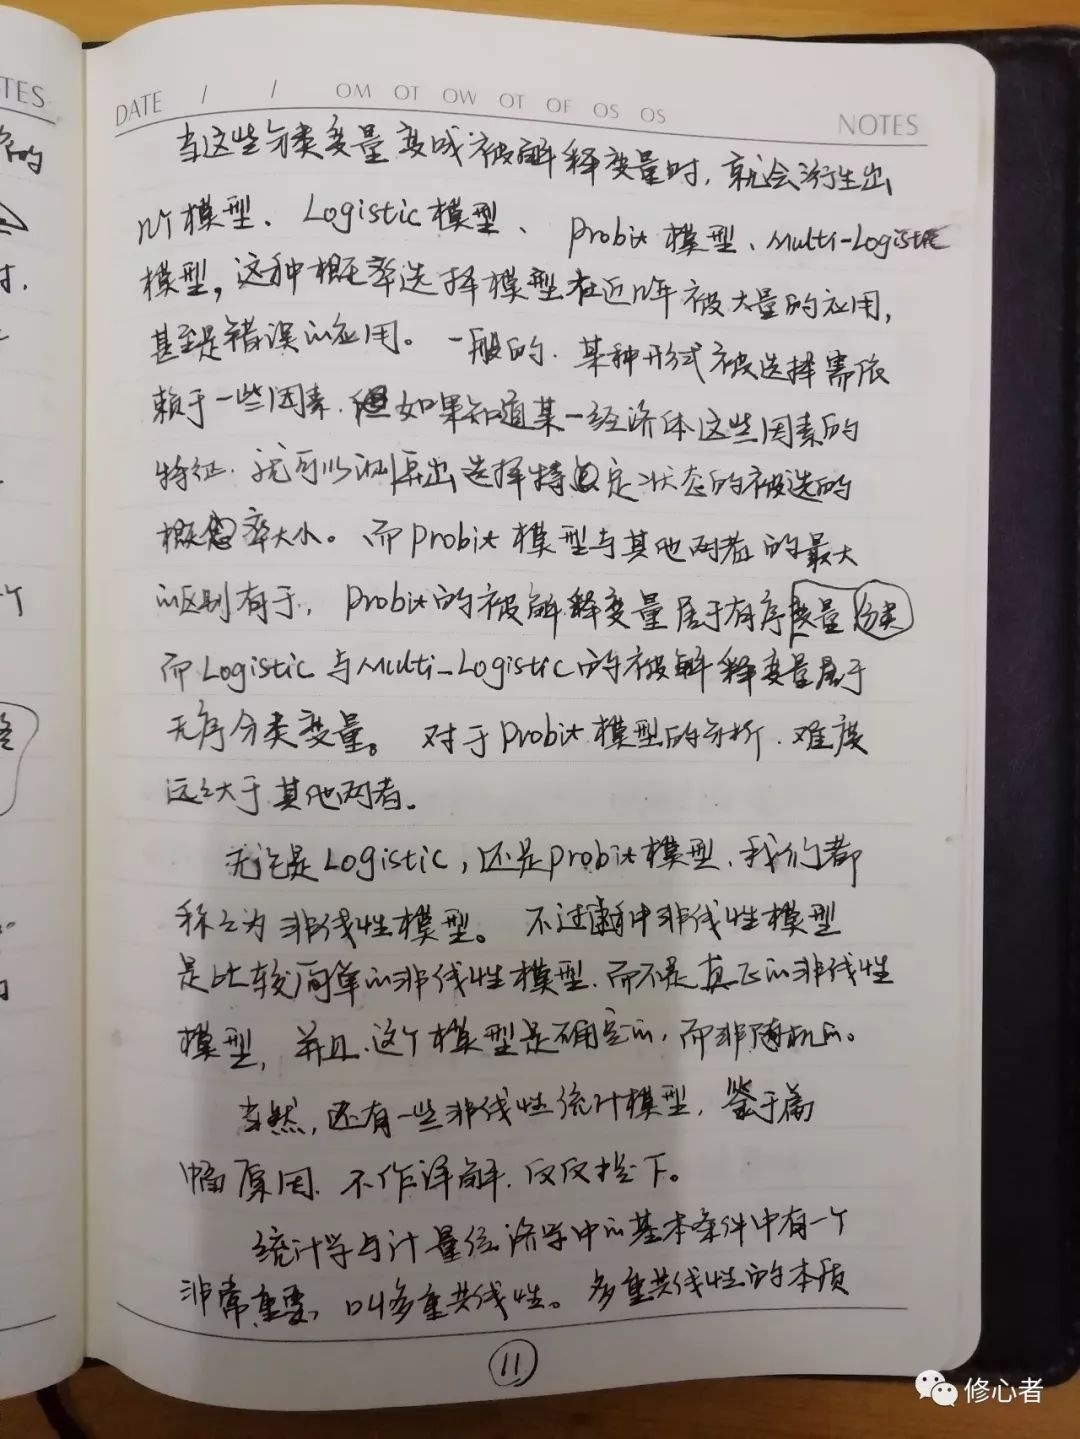 TES
DATE / / OM OT OW OT OF OS OS NOTES
当这些分类变量变成被解释变量时，就会衍生出
几个模型、Logistic模型、Probit模型、Multi-Logistic
模型，这种概率选择模型在近几年被大量的应用，
甚至是错误的应用。一般的，某种形式被选择需依
赖于一些因素，但如果知道某一经济体这些因素的
特征，就可以测算出选择特定状态的被选的
概率大小。而Probit模型与其他两者的最大
的区别有于，Probit的被解释变量属于有序变量分类
而Logistic与Multi-Logistic的被解释变量属于
无序分类变量。对于Probit模型的分析，难度
远大于其他两者。
无论是Logistic，还是Probit模型，我们都
称之为非线性模型。不过这种非线性模型
是比较简单的非线性模型，而不是真正的非线性
模型，并且，这个模型是确定的，而非随机的。
当然，还有一些非线性统计模型，鉴于篇
幅原因，不作详解，仅仅提下。
统计学与计量经济学中的基本条件中有一个
非常重要，叫多重共线性。多重共线性的本质
11
修心者